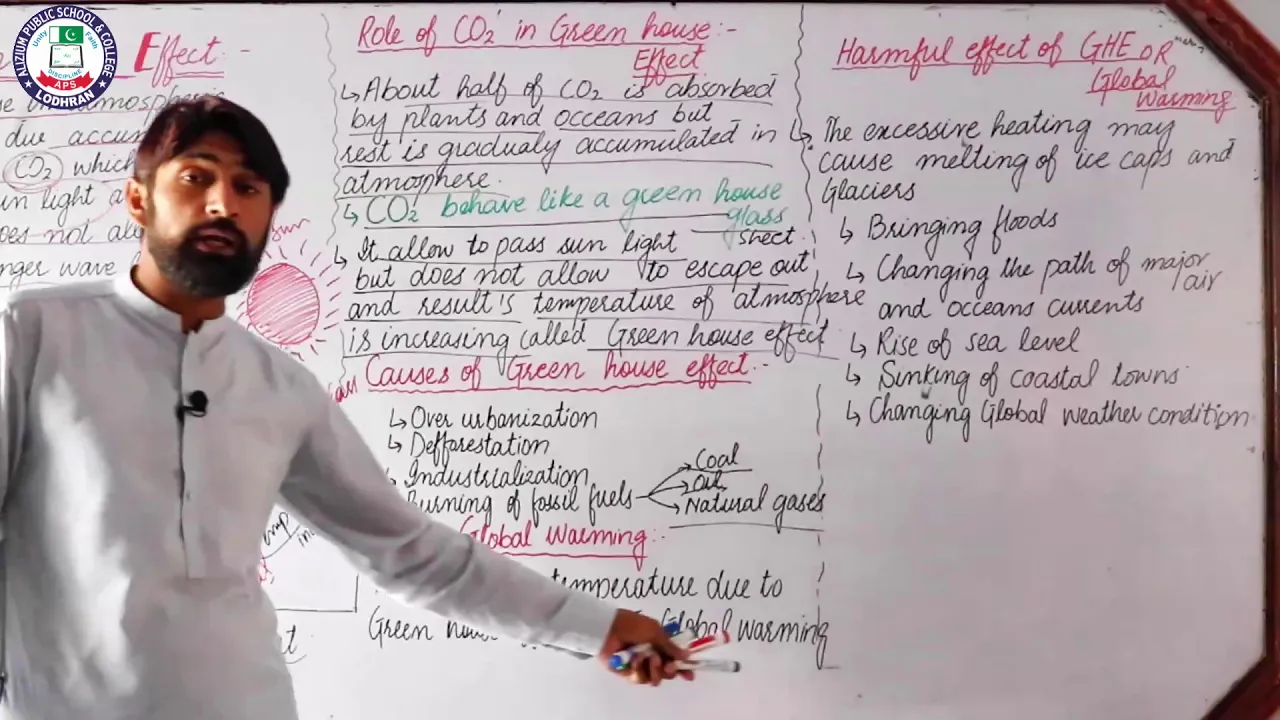 ALIZIUM PUBLIC SCHOOL & COLLEGE
Unity
Faith
DISCIPLINE
APS
LODHRAN
Effect :-
atmospheric
due accum
CO2 which
sun light a
does not all
wave
sun
Role of CO2 in Green house :-
Effect
↳ About half of CO2 is absorbed
by plants and occeans but
rest is gradualy accumulated in
atmosphere.
↳ CO2 behave like a green house
glass
sheet.
↳ It allow to pass sun light
but does not allow to escape out
and result's temperature of atmosphere
is increasing called Green house effect
Causes of Green house effect :-
↳ Over urbanization
↳ Defforestation
↳ Industrialization
Burning of fossil fuels
Coal
Oil
Natural gases
Global Warming :-
temperature due to
Green Global warming
Harmful effect of GHE OR
Global
Warming
↳ The excessive heating may
cause melting of ice caps and
Glaciers
↳ Bringing floods
↳ Changing the path of major
air
and occeans currents
↳ Rise of sea level
↳ Sinking of coastal towns
↳ Changing Global weather condition